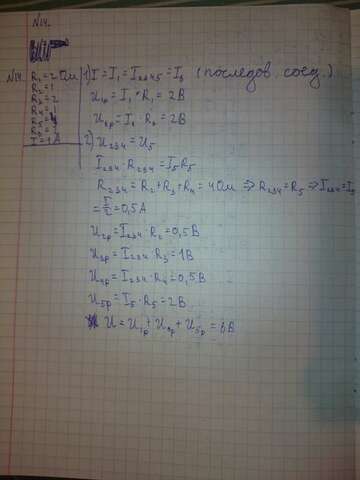 N14.
N14. R₁ = 2 Ом
R₂ = 1
R₃ = 2
R₄ = 1
R₅ = 4
I = 1 A
1) I = I₁ = I₂₃₄₅ = I₆ (последов. соед.)
U₁р = I₁ * R₁ = 2В
2) U₂₃₄ = U₅
I₂₃₄ · R₂₃₄ = I₅R₅
R₂₃₄ = R₂ + R₃ + R₄ = 4 Ом ⇒ R₂₃₄ = R₅ ⇒ I₂₃₄ = I₅
= I/2 = 0,5 А
U₂р = I₂₃₄ · R₂ = 0,5 В
U₃р = I₂₃₄ · R₃ = 1В
U₄р = I₂₃₄ · R₄ = 0,5 В
U₅р = I₅ · R₅ = 2В
U = U₁р + U₆р + U₅р = 6 В